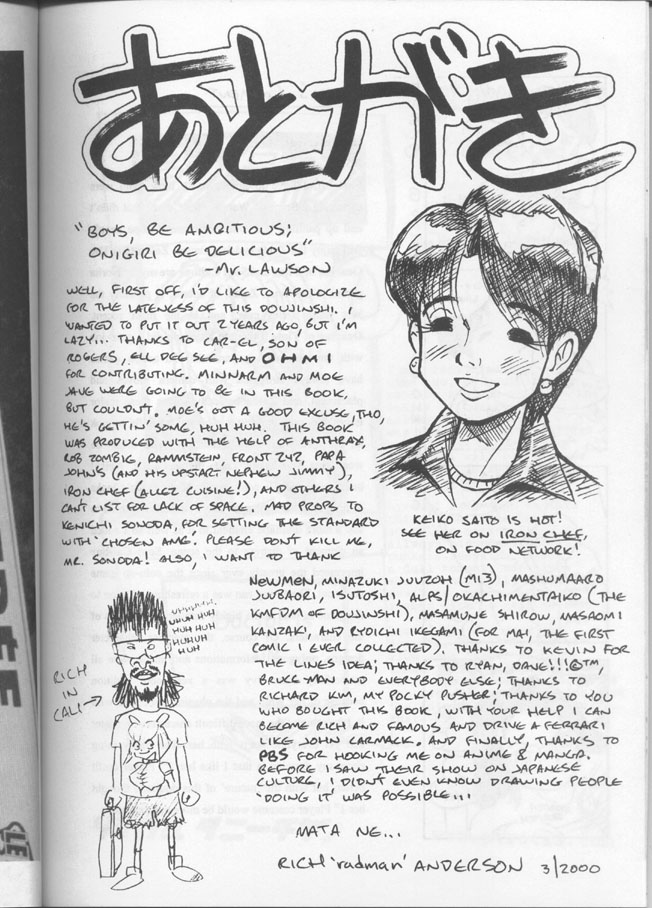 あとがき
"BOYS, BE AMBITIOUS;
ONIGIRI BE DELICIOUS"
-Mr. LAWSON
WELL, FIRST OFF, I'D LIKE TO APOLOGIZE
FOR THE LATENESS OF THIS DOUJINSHI. I
WANTED TO PUT IT OUT 2 YEARS AGO, BUT I'M
LAZY... THANKS TO CAR-EL, SON OF
ROGERS, ELL DEE SEE, AND OHMI
FOR CONTRIBUTING. MINNARM AND MOE
WERE GOING TO BE IN THIS BOOK,
BUT COULDN'T. MOE'S GOT A GOOD EXCUSE, THO,
HE'S GETTIN' SOME, HUH HUH. THIS BOOK
WAS PRODUCED WITH THE HELP OF ANTHRAX,
ROB ZOMBIE, RAMMSTEIN, FRONT 242, PAPA
JOHN'S (AND HIS UPSTART NEPHEW JIMMY),
IRON CHEF (ALLEZ CUISINE!), AND OTHERS I
CAN'T LIST FOR LACK OF SPACE. MAD PROPS TO
KENICHI SONODA, FOR SETTING THE STANDARD
WITH 'CHOSEN AME'. PLEASE DON'T KILL ME,
MR. SONODA! ALSO, I WANT TO THANK
KEIKO SAITO IS HOT!
SEE HER ON IRON CHEF,
ON FOOD NETWORK!
NEWMEN, MINAZUKI JUUZOH (M13), MASHUMAARO
JUUBAORI, ISUTOSHI, ALPS/OKACHIMENTAIKO (THE
KMFDM OF DOUJINSHI), MASAMUNE SHIROW, MASAOMI
KANZAKI, AND RYOICHI IKEGAMI (FOR MAI, THE FIRST
COMIC I EVER COLLECTED). THANKS TO KEVIN FOR
THE LINES IDEA; THANKS TO RYAN, DAVE!!!©™,
BRUCE MAN AND EVERYBODY ELSE; THANKS TO
RICHARD KIM, MY POCKY PUSHER; THANKS TO YOU
WHO BOUGHT THIS BOOK, WITH YOUR HELP I CAN
BECOME RICH AND FAMOUS AND DRIVE A FERRARI
LIKE JOHN CARMACK. AND FINALLY, THANKS TO
PBS FOR HOOKING ME ON ANIME & MANGA.
BEFORE I SAW THEIR SHOW ON JAPANESE
CULTURE, I DIDN'T EVEN KNOW DRAWING PEOPLE
'DOING IT' WAS POSSIBLE...
MATA NE...
RICH 'radman' ANDERSON 3/2000
UHHHHH.
UHUH HUH
HUH HUH
HUHUH
HUH
RICH
IN
CALI